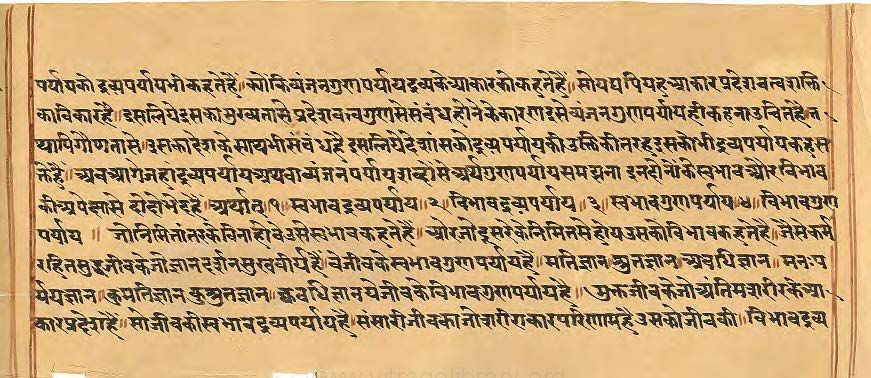 पर्यायको द्रव्यपर्याय भी कहते हैं॥ क्योंकि व्यंजनगुणपर्याय द्रव्यके आकारको कहते हैं॥ सो यद्यपि यह आकार प्रदेशवत्वशक्ति
का विकार है॥ इसलिये इसका मुख्यतासे प्रदेशवत्वगुणसे संबंध होनेके कारण इसे व्यंजनगुणपर्याय ही कहना उचित है॥ त
थापि गौणतासे॥ उसका देशके साथ भी संबंध है इसलिये देशांसको द्रव्यपर्यायकी उक्तिकी तरह इसको भी द्रव्यपर्याय कह स
क्ते हैं॥ अब आगे जहां द्रव्यपर्याय अथवा व्यंजनपर्याय शब्दोंसे अर्थगुणपर्याय समझना इन दोनोंके स्वभाव और विभाव
की अपेक्षासे दो दो भेद हैं॥ अर्थात् १॥ स्वभावद्रव्यपर्याय॥ २॥ विभावद्रव्यपर्याय॥ ३॥ स्वभावगुणपर्याय॥ ४॥ विभावगुण
पर्याय॥ जो निमित्तांतरके विना होवे उसे स्वभाव कहते हैं॥ और जो दूसरेके निमित्तसे होय उसको विभाव कहते हैं॥ जैसे कर्म
रहित शुद्ध जीवके जो ज्ञान दर्शन सुख वीर्य हैं॥ वे जीवके स्वभावगुणपर्याय हैं॥ मतिज्ञान श्रुतज्ञान अवधिज्ञान॥ मनःप
र्ययज्ञान॥ कुमतिज्ञान कुश्रुतज्ञान॥ कुवधिज्ञान ये जीवके विभावगुणपर्याय हे॥ मुक्तजीवके जो अंतिमशरीरके आ
कार प्रदेश हैं॥ सो जीवकी स्वभावद्रव्यपर्याय है॥ संसारी जीवका जो शरीराकार परिणाम है उसको जीवकी॥ विभावद्रव्य